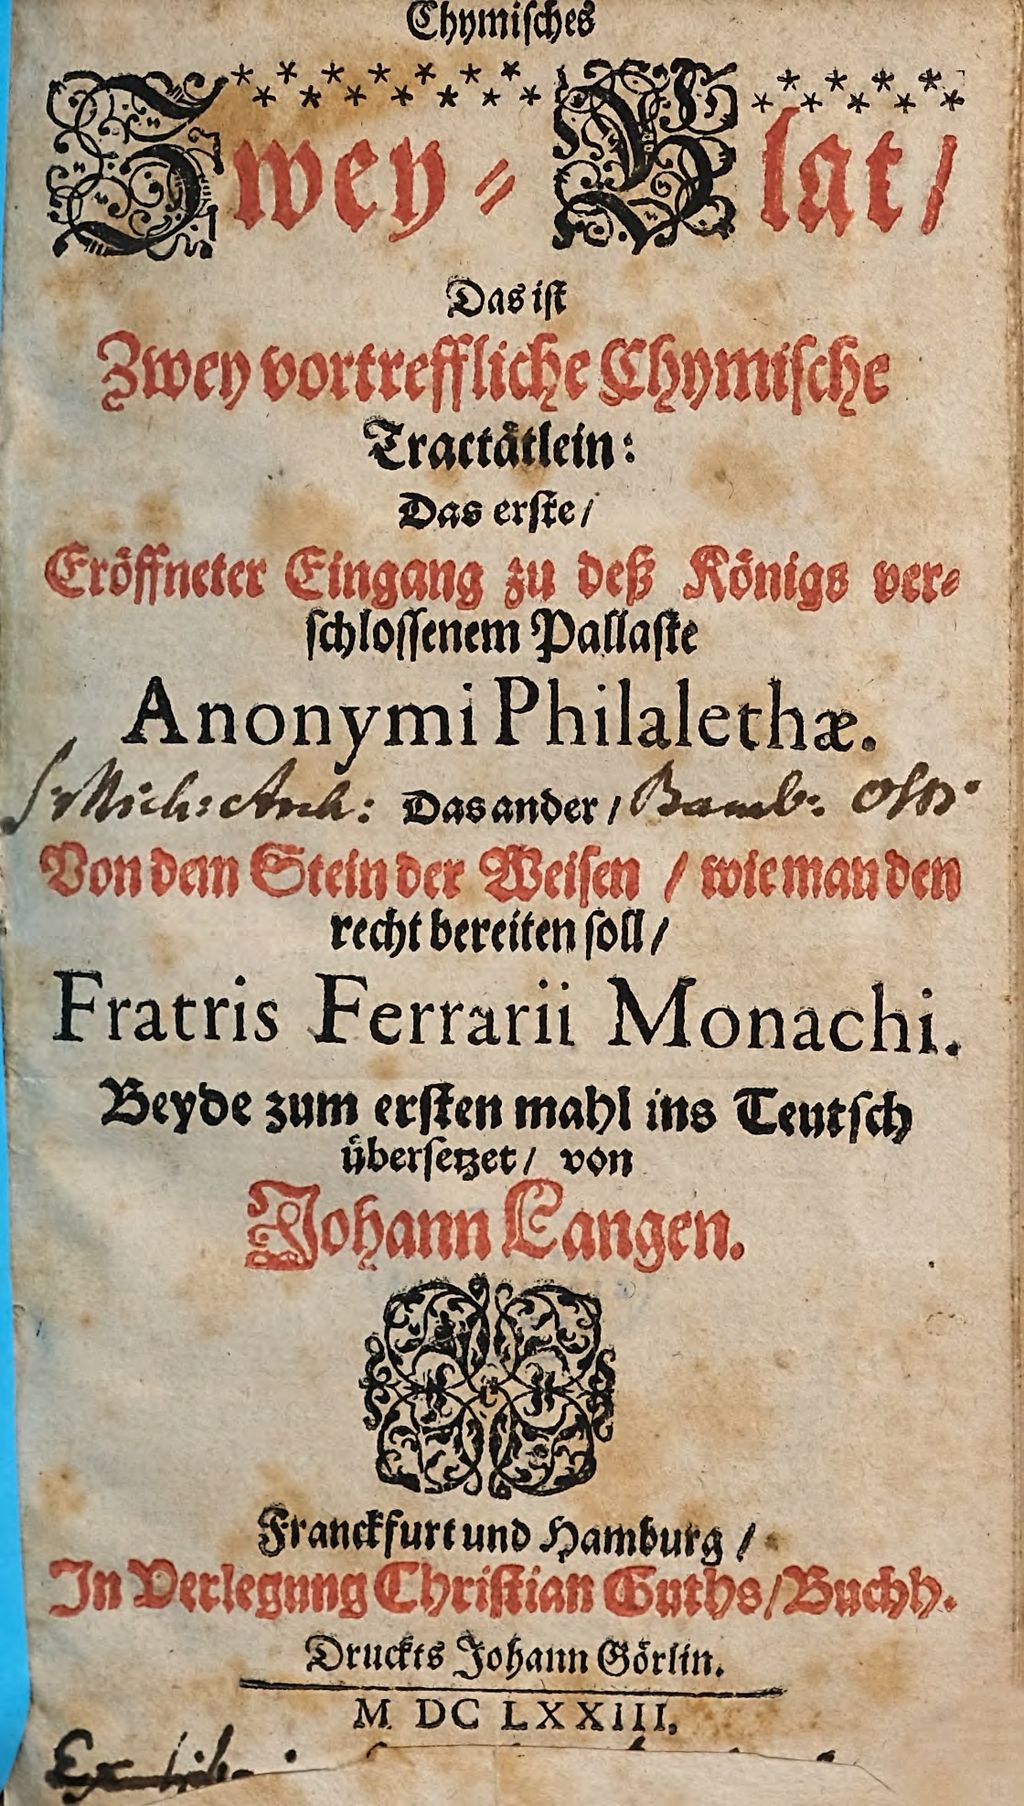 Chymisches
Zwey-Blat/
Das ist
Zwey vortreffliche Chymische
Tractätlein:
Das erste/
Eröffneter Eingang zu deß Königs ver-
schlossenem Pallaste
Anonymi Philalethæ.
S. Mich: Arch: Das ander / Bamb:
Von dem Stein der Weisen / wie man den
recht bereiten soll /
Fratris Ferrarii Monachi.
Beyde zum ersten mahl ins Teutsch
übersetzet / von
Johann Langen.
Franckfurt und Hamburg /
In Verlegung Christian Guths / Buchh.
Druckts Johann Görlin.
M DC LXXIII.
Ex lib.